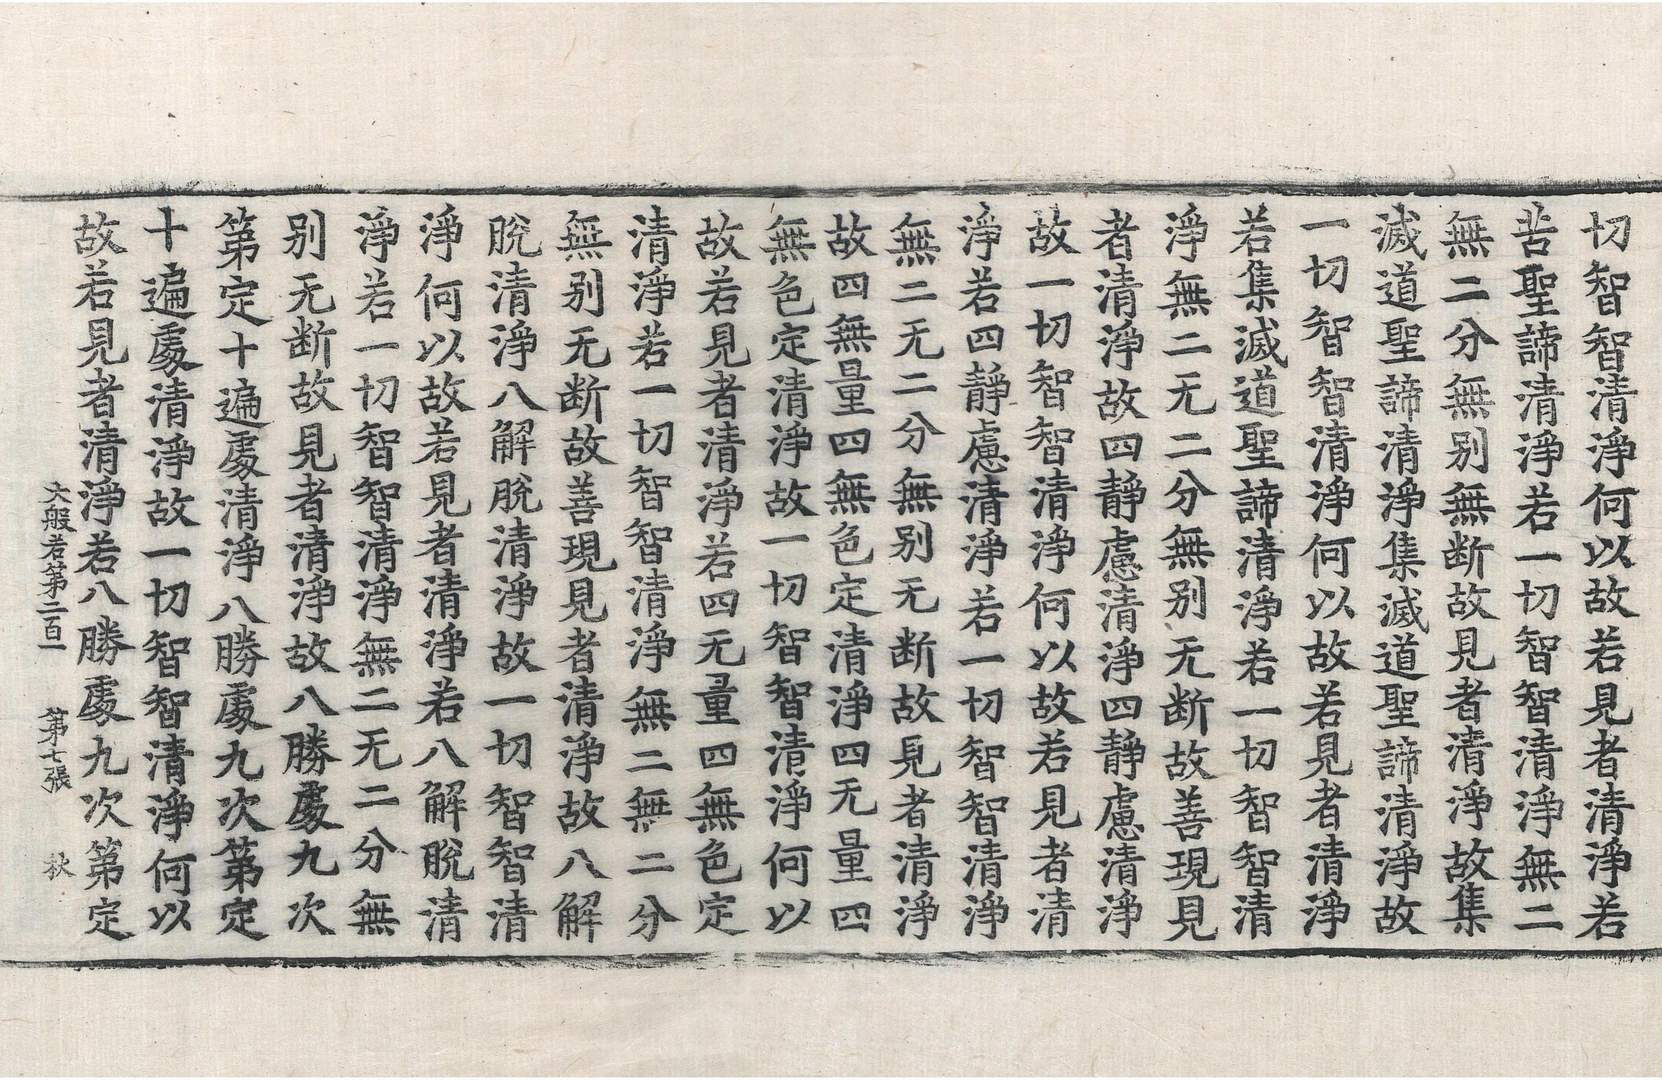 切智智清淨何以故若見者清淨若
苦聖諦清淨若一切智智清淨無二
無二分無别無断故見者清淨故集
滅道聖諦清淨集滅道聖諦清淨故
一切智智清淨何以故若見者清淨
若集滅道聖諦清淨若一切智智清
淨無二无二分無别无断故善現見
者清淨故四靜慮清淨四靜慮清淨
故一切智智清淨何以故若見者清
淨若四靜慮清淨若一切智智清淨
無二无二分無别无断故見者清淨
故四無量四無色定清淨四无量四
無色定清淨故一切智智清淨何以
故若見者清淨若四无量四無色定
清淨若一切智智清淨無二無二分
無别无断故善現見者清淨故八解
脫清淨八解脫清淨故一切智智清
淨何以故若見者清淨若八解脫清
淨若一切智智清淨無二无二分無
别无断故見者清淨故八勝處九次
第定十遍處清淨八勝處九次第定
十遍處清淨故一切智智清淨何以
故若見者清淨若八勝處九次第定
大般若第二百一 第七張 秋